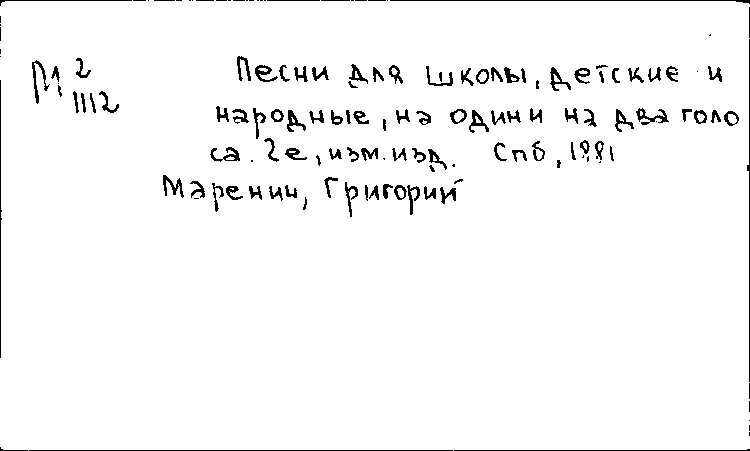 М 2/1112
Песни для школы, детские и
народные, на один и на два голо
са. 2е, изм. изд. Спб, 1881
Маренич, Григорий